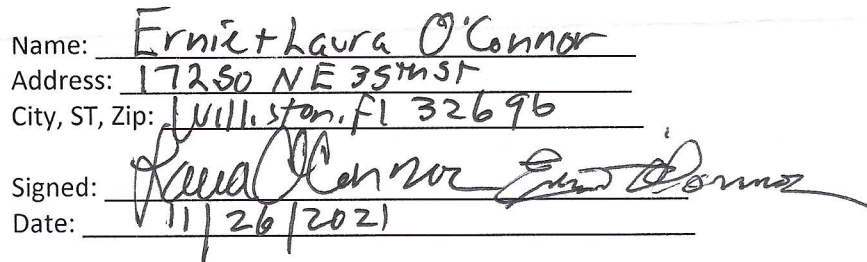 Name: Ernie + Laura O'Connor
Address: 17250 NE 35th St
City, ST, Zip: Williston, Fl 32696
Signed: Laura O'Connor Ernie O'Connor
Date: 11/26/2021